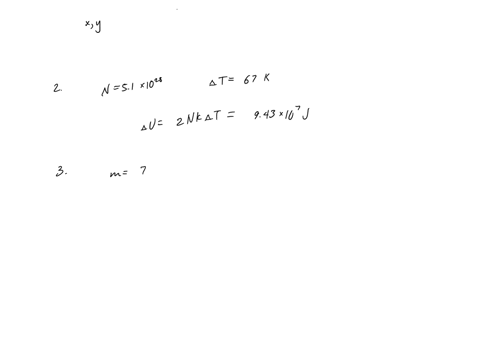 x, y
2. N = 5.1 × 10²⁸ ΔT = 67 K
ΔU = 2NkΔT = 9.43 × 10⁷ J
3. m = 7